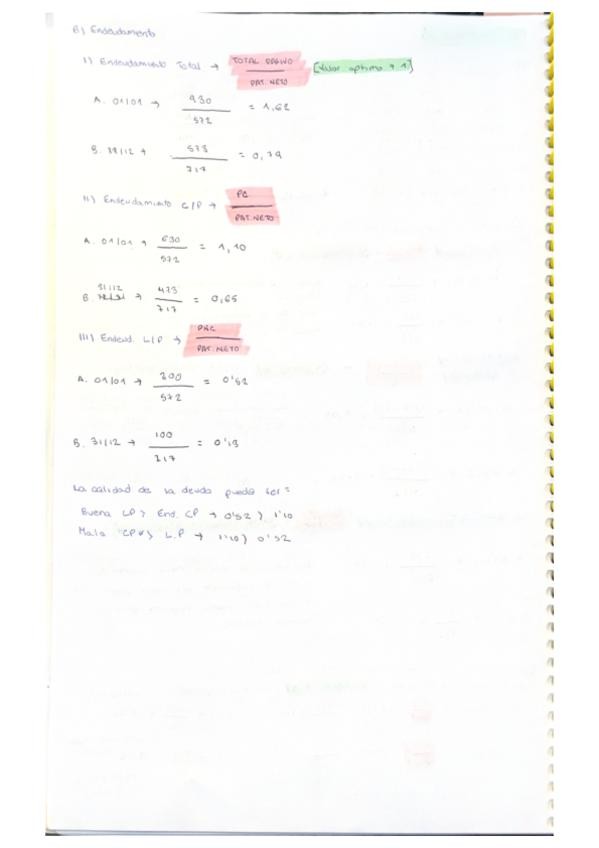 B) Endeudamiento
I) Endeudamiento Total → TOTAL PASIVO / PAT. NETO [Valor optimo → 1]
A. 01/01 → 930 / 572 = 1,62
B. 31/12 → 573 / 717 = 0,79
II) Endeudamiento C/P → PC / PAT. NETO
A. 01/01 → 630 / 572 = 1,10
31/12
B. → 473 / 717 = 0,65
III) Endeud. L/P → PNC / PAT. NETO
A. 01/01 → 300 / 572 = 0'52
B. 31/12 → 100 / 717 = 0'13
La calidad de la deuda puede ser:
Buena LP > End. CP → 0'52 > 1'10
Mala CP > L.P → 1'10 > 0'52